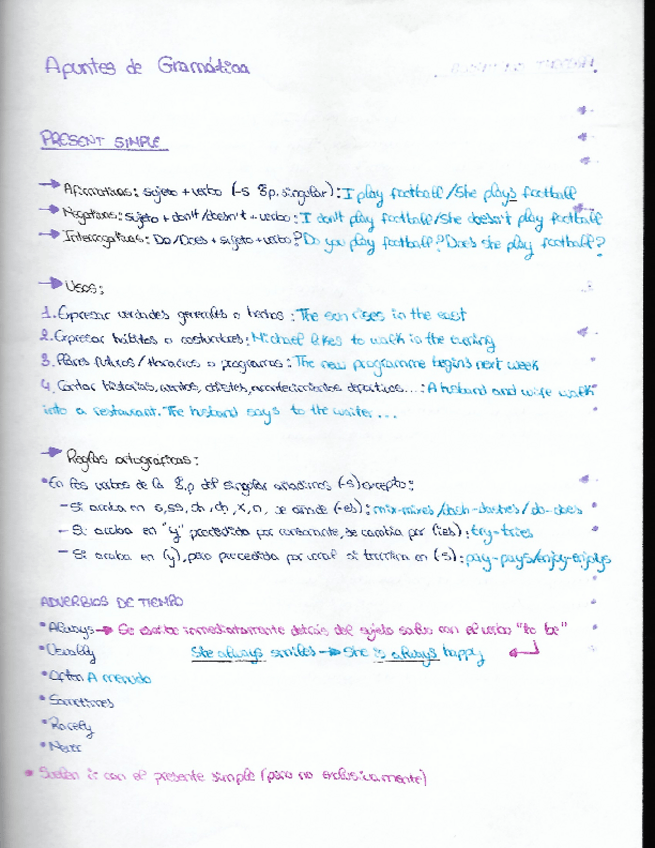 Apuntes de Gramática
PRESENT SIMPLE
→ Afirmativas: sujeto + verbo (-s 3p. singular): I play football/She plays football
→ Negativas: sujeto + don't/doesn't + verbo: I don't play football/She doesn't play football
→ Interrogativas: Do/Does + sujeto + verbo? Do you play football? Does she play football?
→ Usos:
1. Expresar verdades generales o hechos: The sun rises in the east
2. Expresar hábitos o costumbres: Michael likes to walk in the evening
3. Planes futuros/Horarios o programas: The new programme begins next week
4. Contar historias, cuentos, chistes, acontecimientos deportivos...: A husband and wife walk
into a restaurant. The husband says to the waiter...
→ Reglas ortográficas:
• En los verbos de la 3.p del singular añadimos (-s) excepto:
- Si acaba en s, ss, sh, ch, x, o, se añade (-es): mix-mixes/ /do-does
- Si acaba en "y" precedida por consonante, se cambia por (ies): try-tries
- Si acaba en (y), pero precedida por vocal sí termina en (-s): pay-pays/enjoy-enjoys
ADVERBIOS DE TIEMPO
• Always → Se escribe inmediatamente detrás del sujeto salvo con el verbo "to be"
• Usually She always smiles → She is always happy
• Often A menudo
• Sometimes
• Rarely
• Never
• Suelen ir con el presente simple (pero no exclusivamente)